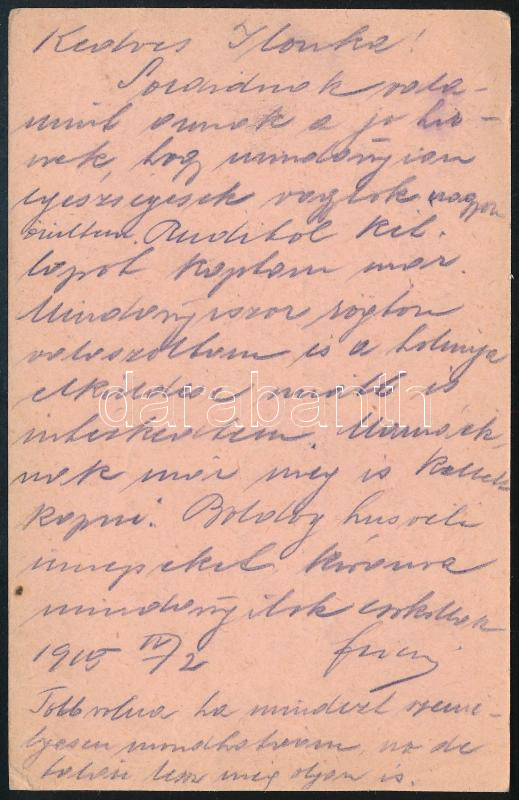 Kedves Ilonka!
Soraidnak vala-
mint annak a jo hir-
nek, hogy mindanyian
egeszsegesek vagytok nagyon
örültem. Ruditol két
lapot kaptam mar.
Mindanyiszor rögtön
valaszoltam is a holmija
elküldése miatt is
intezkedtem. Mamáék-
nak már meg is kellett
kapni. Boldog husveti
ünnepeket kivanva
mindanyitok csokollak
1915 IV/2 Feri
Jobb volna ha mindezt szeme-
lyesen mondhatnam, no de
talán lesz még olyan is.
darabanth